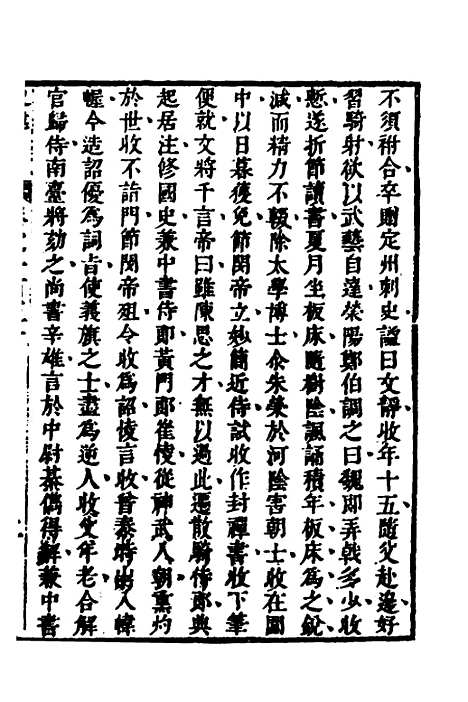 不須祔合卒贈定州刺史謚曰文靜收年十五隨父赴邊好
習騎射欲以武藝自達滎陽鄭伯調之曰魏郎弄戟多少收
慙遂折節讀書夏月坐板床隨樹陰諷誦積年板床為之銳
減而精力不輟除太學博士尒朱榮於河陰害朝士收在圍
中以日暮獲免節閔帝立妙簡近侍試收作封禪書收下筆
便就文將千言帝曰雖陳思之才無以過此遷散騎侍郎典
起居注修國史兼中書侍郎黃門郎崔㥄從神武入朝熏灼
於世收不詣門節閔帝殂令收為詔㥄言收晉泰時入幃
幄今造詔優為詞旨使義旗之士盡為逆人收父年老合解
官歸侍南臺將劾之尚書辛雄言於中尉綦儁得解兼中書